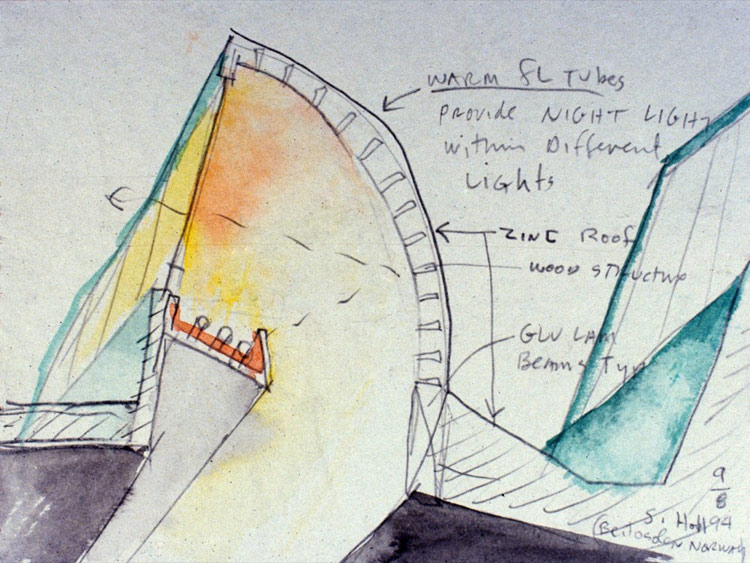 WARM FL TUBES
PROVIDE NIGHT LIGHT
within Different
Lights
ZINC ROOF
WOOD STRUCTURE
GLU LAM
Beams Typ
9
8
S. Holl 94
NORWAY